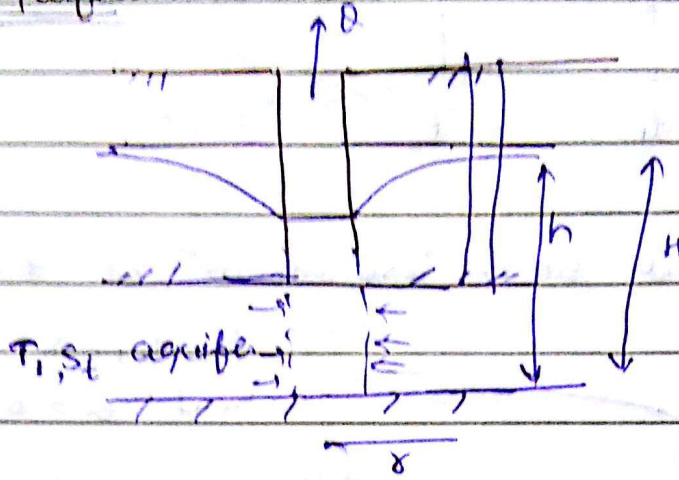 Q
h
H
T, St aquifer
r